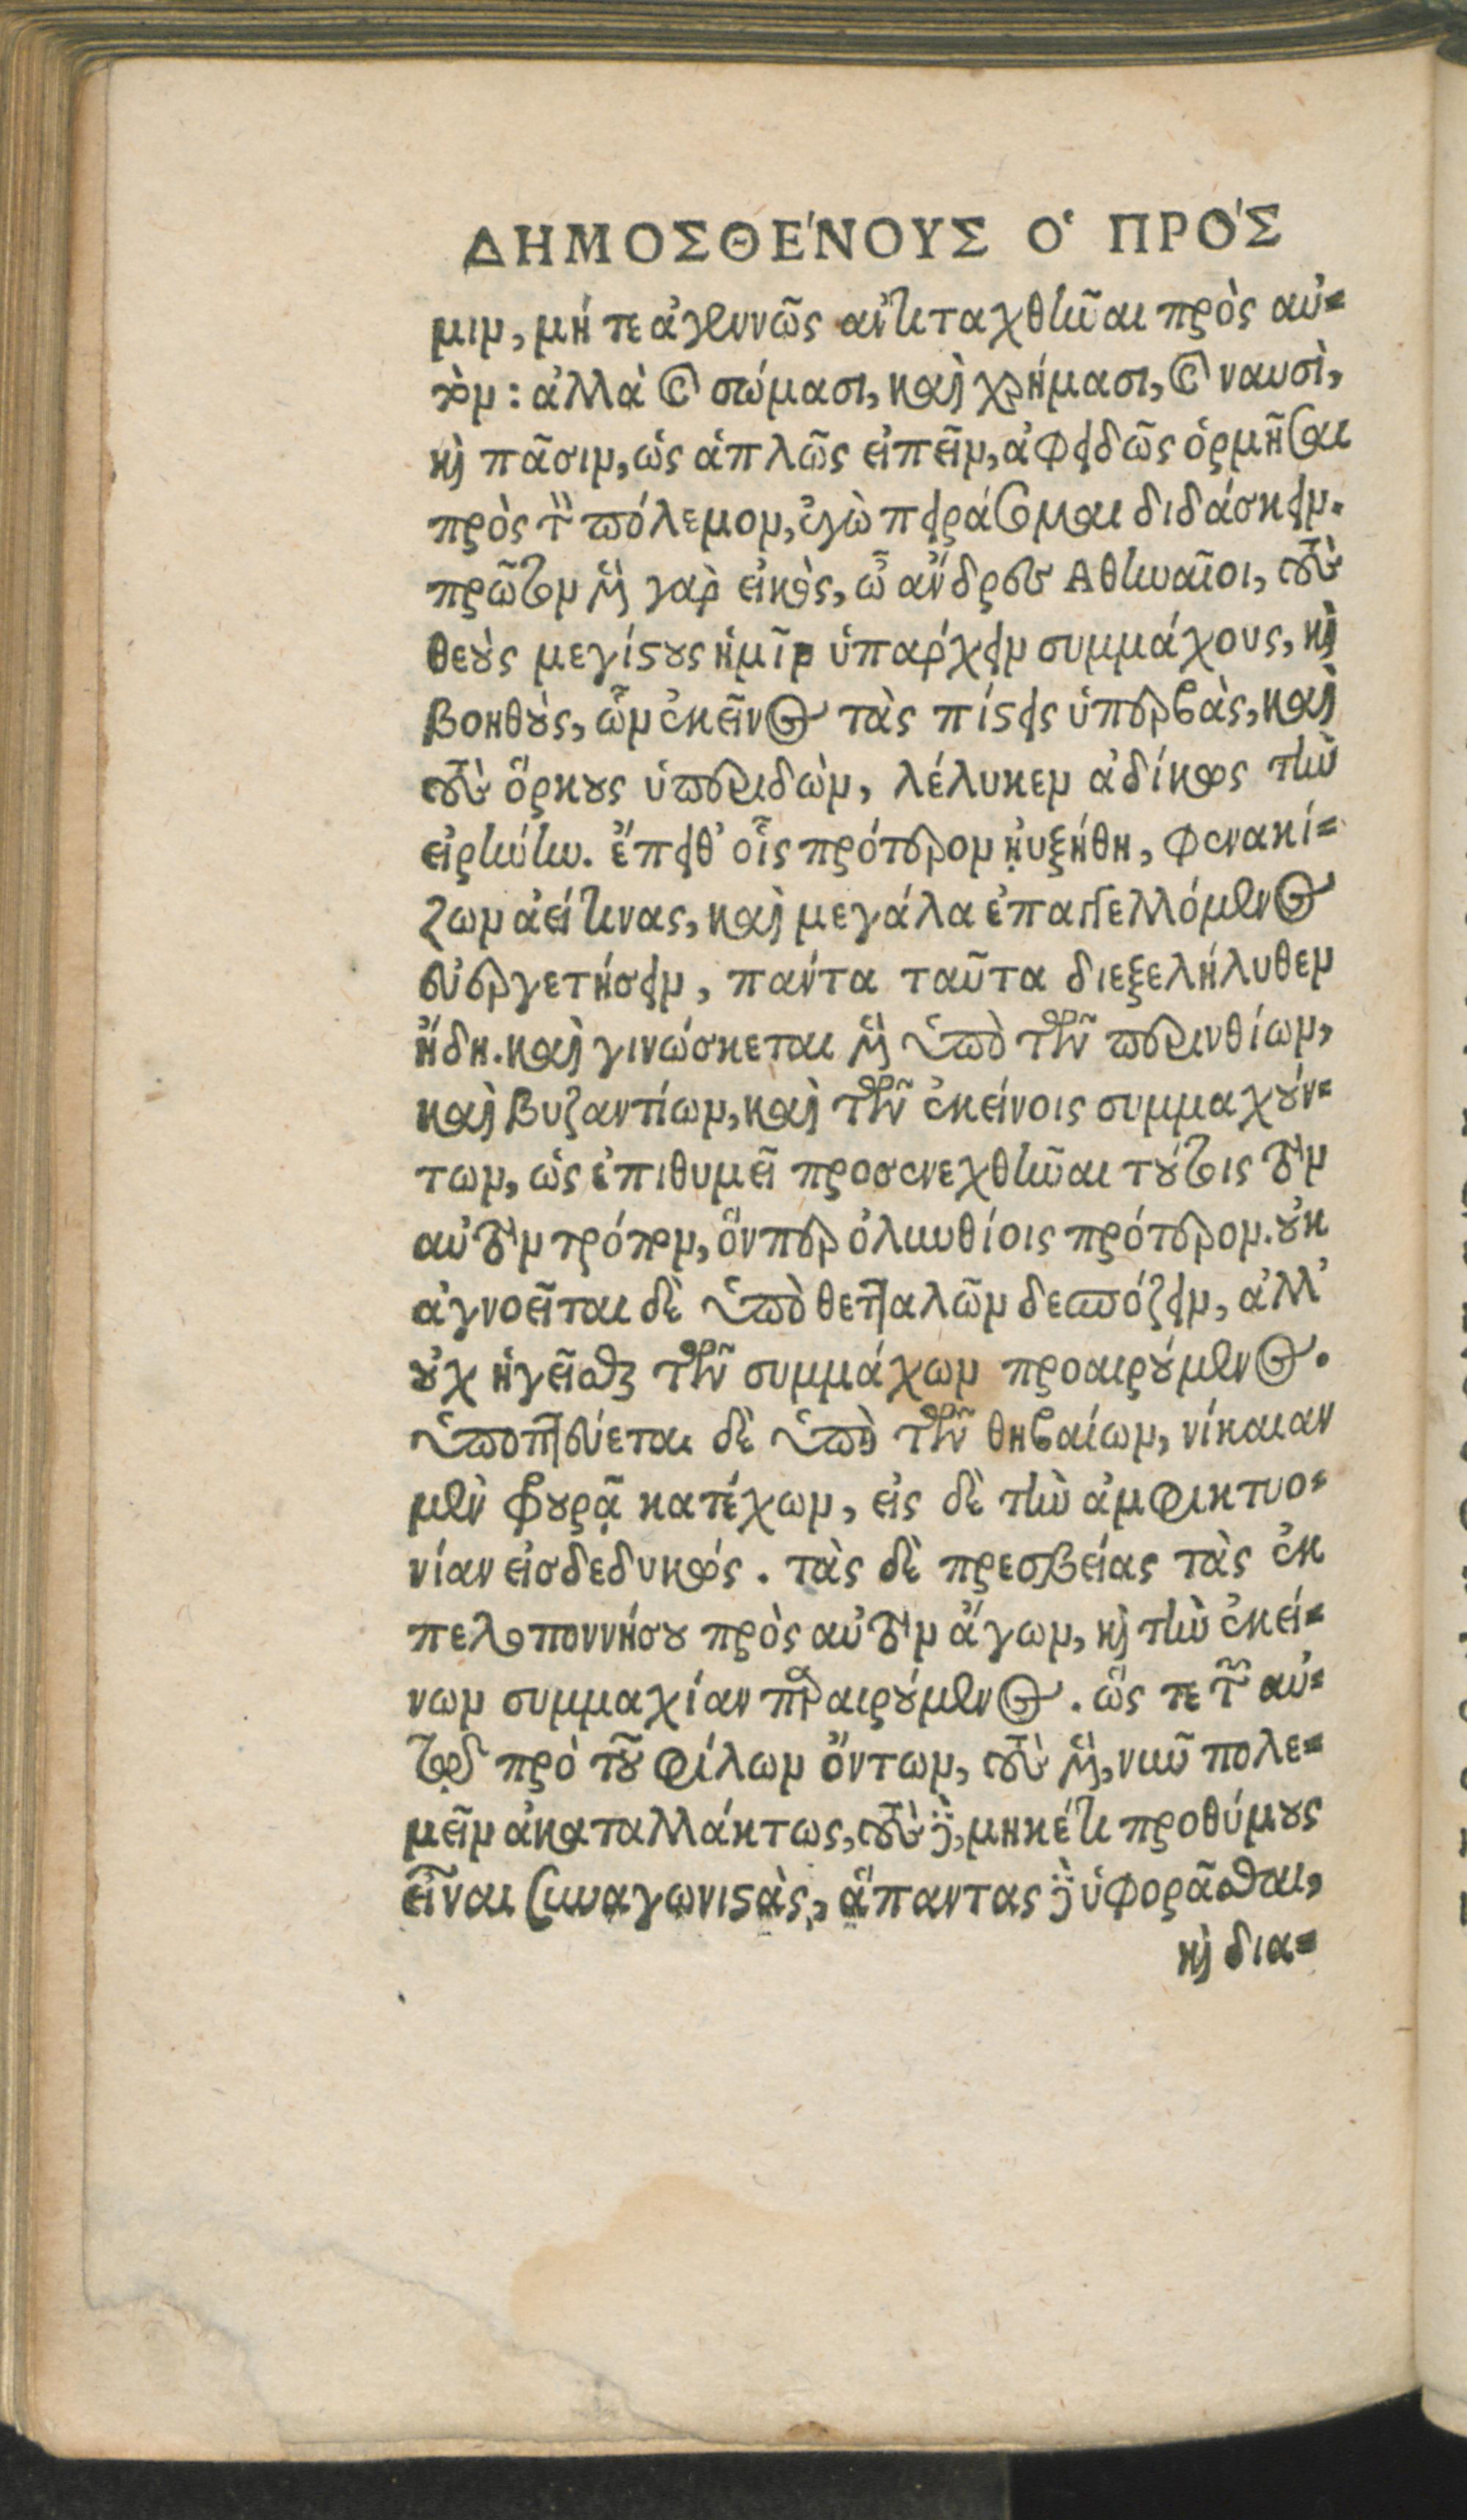 ΔΗΜΟΣΘΕΝΟΥΣ Ο ΠΡΟΣ
μιν, μή τε ἀγεννῶς ἀντιταχθῆναι πρὸς αὐ=
τόν: ἀλλὰ καὶ σώμασι, καὶ χρήμασι, καὶ ναυσὶ,
καὶ πᾶσιν, ὡς ἁπλῶς εἰπεῖν, ἀφειδῶς ὁρμῆσαι
πρὸς τὸν πόλεμον, ἐγὼ πειράσομαι διδάσκειν.
πρῶτον μὲν γὰρ εἰκὸς, ὦ ἄνδρες Ἀθηναῖοι, τοὺς
θεοὺς μεγίστους ἡμῖν ὑπάρχειν συμμάχους, καὶ
βοηθοὺς, ὧν ἐκεῖνος τὰς πίστεις ὑπερβὰς, καὶ
τοὺς ὅρκους ὑπεριδὼν, λέλυκεν ἀδίκως τὴν
εἰρήνην. ἔπειθ' οἷς πρότερον ηὐξήθη, φενακί=
ζων ἀεί τινας, καὶ μεγάλα ἐπαγγελλόμενος
εὐεργετήσειν, πάντα ταῦτα διεξελήλυθεν
ἤδη. καὶ γινώσκεται μὲν ὑπὸ τῶν περινθίων,
καὶ Βυζαντίων, καὶ τῶν ἐκείνοις συμμαχούν=
των, ὡς ἐπιθυμεῖ προσενεχθῆναι τούτοις τὸν
αὐτὸν τρόπον, ὅνπερ ὀλυνθίοις πρότερον. οὐκ
ἀγνοεῖται δὲ ὑπὸ θετταλῶν δεσπόζειν, ἀλλ'
οὐχ ἡγεῖσθαι τῶν συμμάχων προαιρούμενος.
ὑποπτεύεται δὲ ὑπὸ τῶν θηβαίων, νίκαιαν
μὲν φρουρᾷ κατέχων, εἰς δὲ τὴν ἀμφικτυο=
νίαν εἰσδεδυκώς. τὰς δὲ πρεσβείας τὰς ἐκ
πελοποννήσου πρὸς αὐτὸν ἄγων, καὶ τὴν ἐκεί=
νων συμμαχίαν παραιρούμενος. ὥς τε τῶν αὐ=
τῷ πρὸ τοῦ φίλων ὄντων, τοὺς μὲν, νῦν πολε=
μεῖν ἀκαταλλάκτως, τοὺς δὲ, μηκέτι προθύμους
εἶναι συναγωνιστὰς, ἅπαντας δὲ ὑφορᾶσθαι,
καὶ δια=